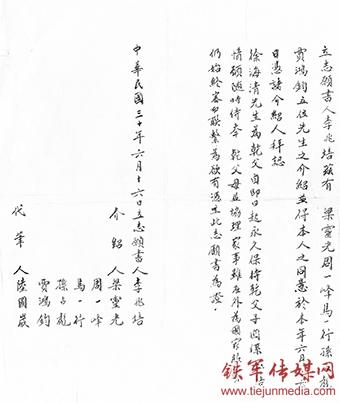 立志願書人李兆培茲有 梁靈光周一峰馬一行孫占龍
賈鴻鈞五位先生之介紹並得本人之同意於本年六月十六
日憑諸介紹人拜認
徐海清先生為乾父自即日起永久保持乾父子關係
情願隨時侍奉 乾父母並協理家事雖在外為國家
仍始終密切聯繫為欲有憑立此志願書為證。
中華民國三十年六月十六日立志願書人李兆培
介紹人梁靈光
周一峰
馬一行
孫占龍
賈鴻鈞
代筆人陸國嚴
铁军传媒网
www.tiejunmedia.com